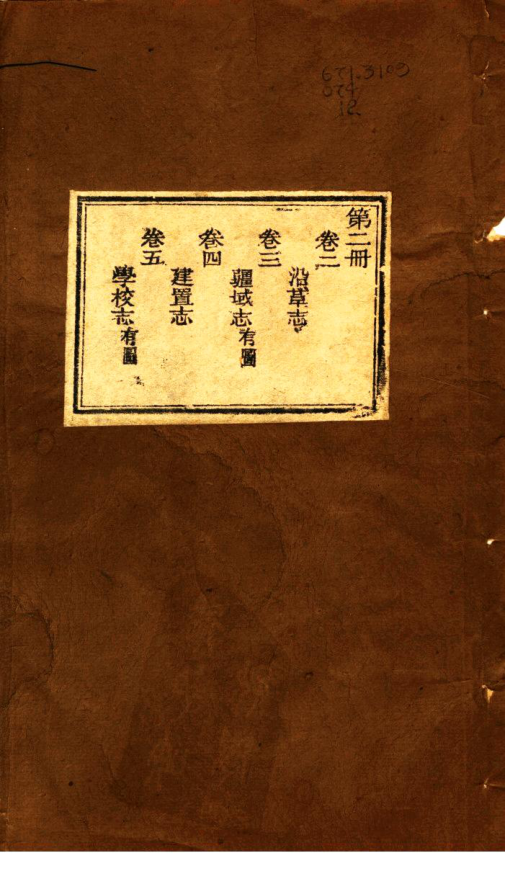 第二冊
卷二
沿革志
卷三
疆域志有圖
卷四
建置志
卷五
學校志有圖